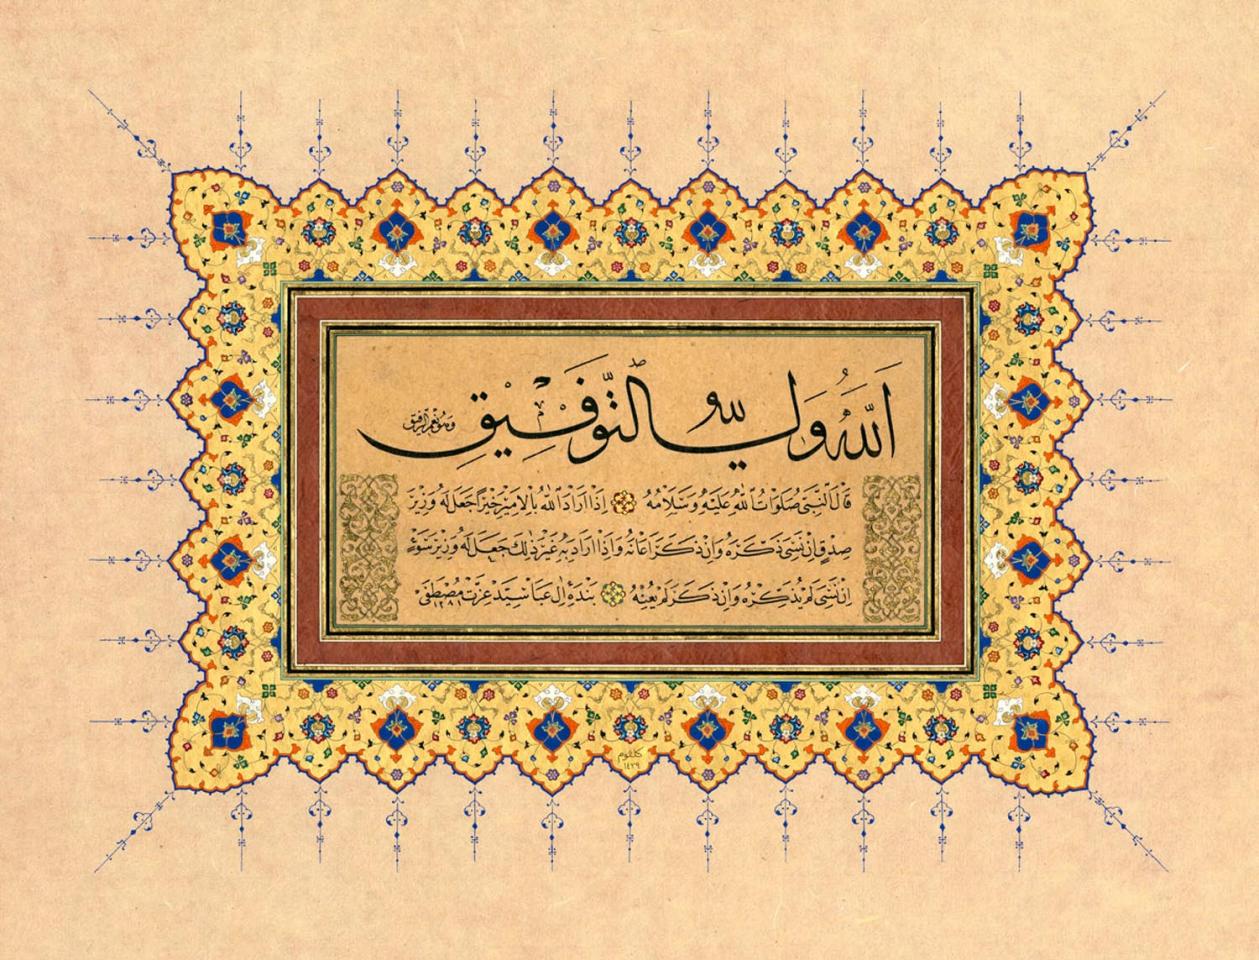 اَللهُ وَلِيُّ التَّوْفِيقِ وَهُوَ نِعْمَ الرَّفِيقُ
قَالَ النَّبِيُّ صَلَوَاتُ اللهِ عَلَيْهِ وَسَلَامُهُ اِذَا اَرَادَ اللهُ بِالْاَمِيرِ خَيْرًا جَعَلَ لَهُ وَزِيرَ
صِدْقٍ اِنْ نَسِيَ ذَكَّرَهُ وَاِنْ ذَكَرَ اَعَانَهُ وَاِذَا اَرَادَ بِهِ غَيْرَ ذٰلِكَ جَعَلَ لَهُ وَزِيرَ سَوْءٍ
اِنْ نَسِيَ لَمْ يُذَكِّرْهُ وَاِنْ ذَكَرَ لَمْ يُعِنْهُ بَنْدَهٔ اٰلِ عَبَا سَيِّدْ عِزَّتْ مُصْطَفَى
١٤٢٩